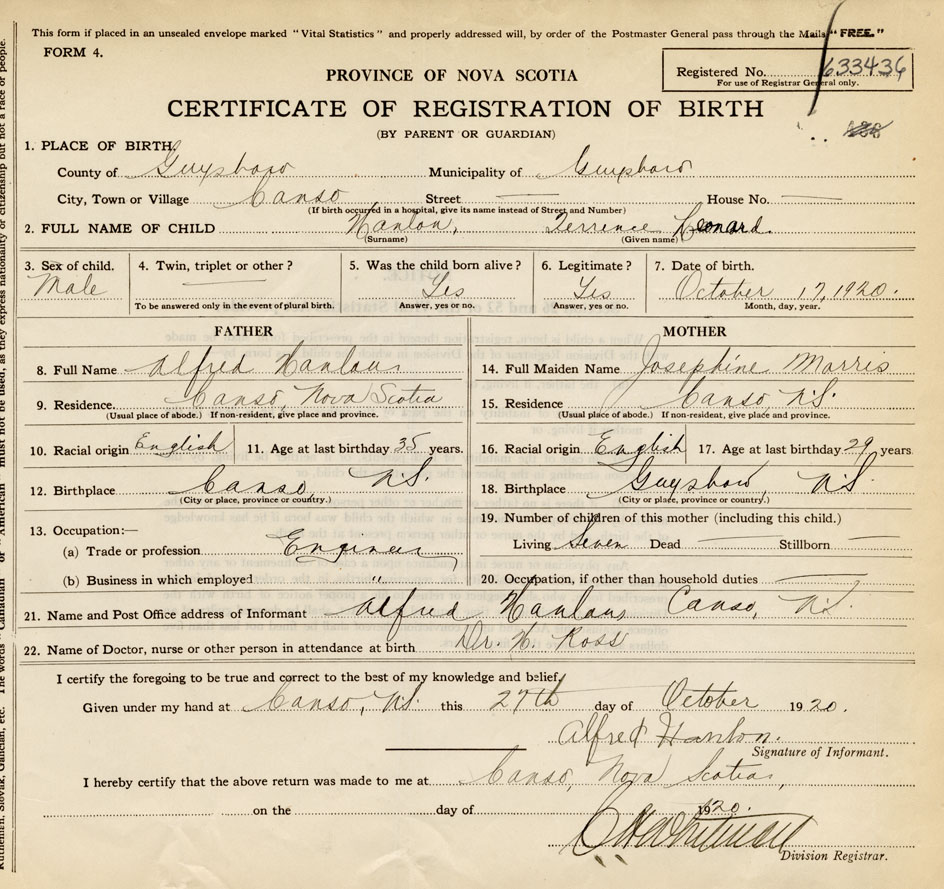 This form if placed in an unsealed envelope marked "Vital Statistics" and properly addressed will, by order of the Postmaster General pass through the Mails "FREE."
FORM 4.
Registered No. 633436
For use of Registrar General only.
PROVINCE OF NOVA SCOTIA
CERTIFICATE OF REGISTRATION OF BIRTH
(BY PARENT OR GUARDIAN)
1. PLACE OF BIRTH
County of Guysboro Municipality of Guysboro
City, Town or Village Canso Street — House No. —
(If birth occurred in a hospital, give its name instead of Street and Number)
2. FULL NAME OF CHILD Hanlon, Terrence Leonard.
(Surname) (Given name)
3. Sex of child. 4. Twin, triplet or other? 5. Was the child born alive? 6. Legitimate? 7. Date of birth.
Male — Yes Yes October 17, 1920.
To be answered only in the event of plural birth. Answer, yes or no. Answer, yes or no. Month, day, year.
FATHER
8. Full Name Alfred Hanlon
9. Residence. Canso, Nova Scotia
(Usual place of abode.) If non-resident, give place and province.
10. Racial origin English 11. Age at last birthday 35 years.
12. Birthplace Canso N.S.
(City or place, province or country.)
13. Occupation:—
(a) Trade or profession Engineer
(b) Business in which employed "
MOTHER
14. Full Maiden Name Josephine Morris
15. Residence Canso, N.S.
(Usual place of abode.) If non-resident, give place and province.
16. Racial origin English 17. Age at last birthday 29 years
18. Birthplace Guysboro, N.S.
(City or place, province or country.)
19. Number of children of this mother (including this child.)
Living Seven Dead — Stillborn —
20. Occupation, if other than household duties —
21. Name and Post Office address of Informant Alfred Hanlon Canso, N.S.
22. Name of Doctor, nurse or other person in attendance at birth Dr. H. Ross
I certify the foregoing to be true and correct to the best of my knowledge and belief,
Given under my hand at Canso, N.S. this 27th day of October 1920.
Alfred Hanlon.
Signature of Informant.
I hereby certify that the above return was made to me at Canso, Nova Scotia,
on the day of 1920.
Division Registrar.
Ruthenien, Slovak, Galician, etc. The words "Canadian" or "American" must not be used, as they express nationality or citizenship but not a race or people.